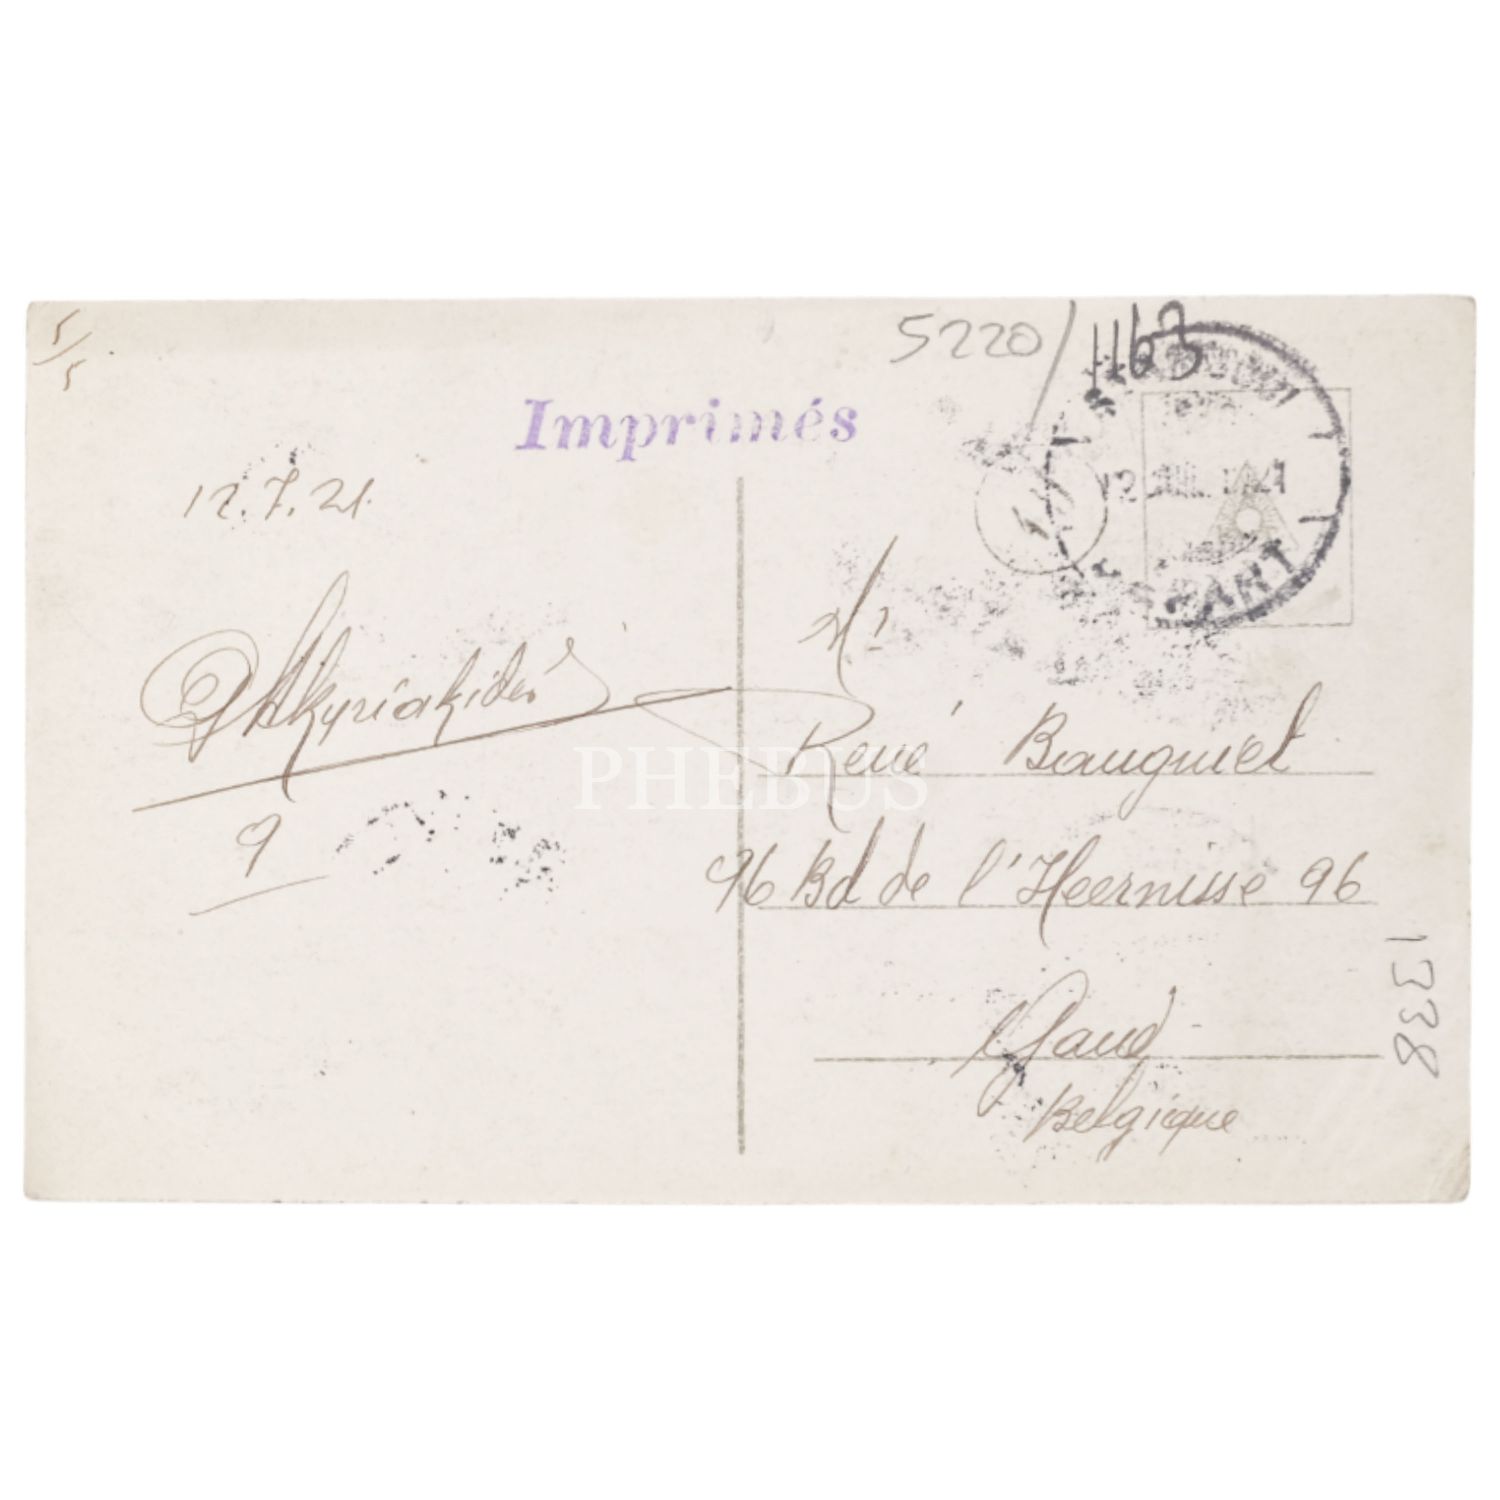 5/5
5220/
1163
Imprimés
12 JUIL 1921
DEPART
12.7.21.
Akyriakides
9
Mr
René Bauguiet
96 Bd de l'Heernisse 96
Gand
Belgique
1338
PHEBUS